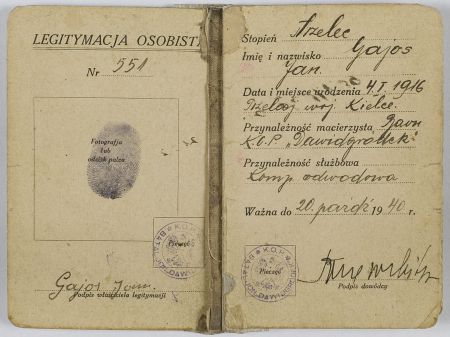 LEGITYMACJA OSOBISTA
Nr 551
Fotografja
lub
odcisk palca
Pieczęć
Gajos Jan
Podpis właściciela legitymacji
Stopień Strzelec
Imię i nazwisko Gajos
Jan
Data i miejsce urodzenia 4 I 1916
woj Kielce
Przynależność macierzysta Baon
K.O.P. "Dawidgródek"
Przynależność służbowa
Komp. odwodowa
Ważna do 20. paźdź 1940 r.
K.O.P.
Pieczęć
Podpis dowódcy